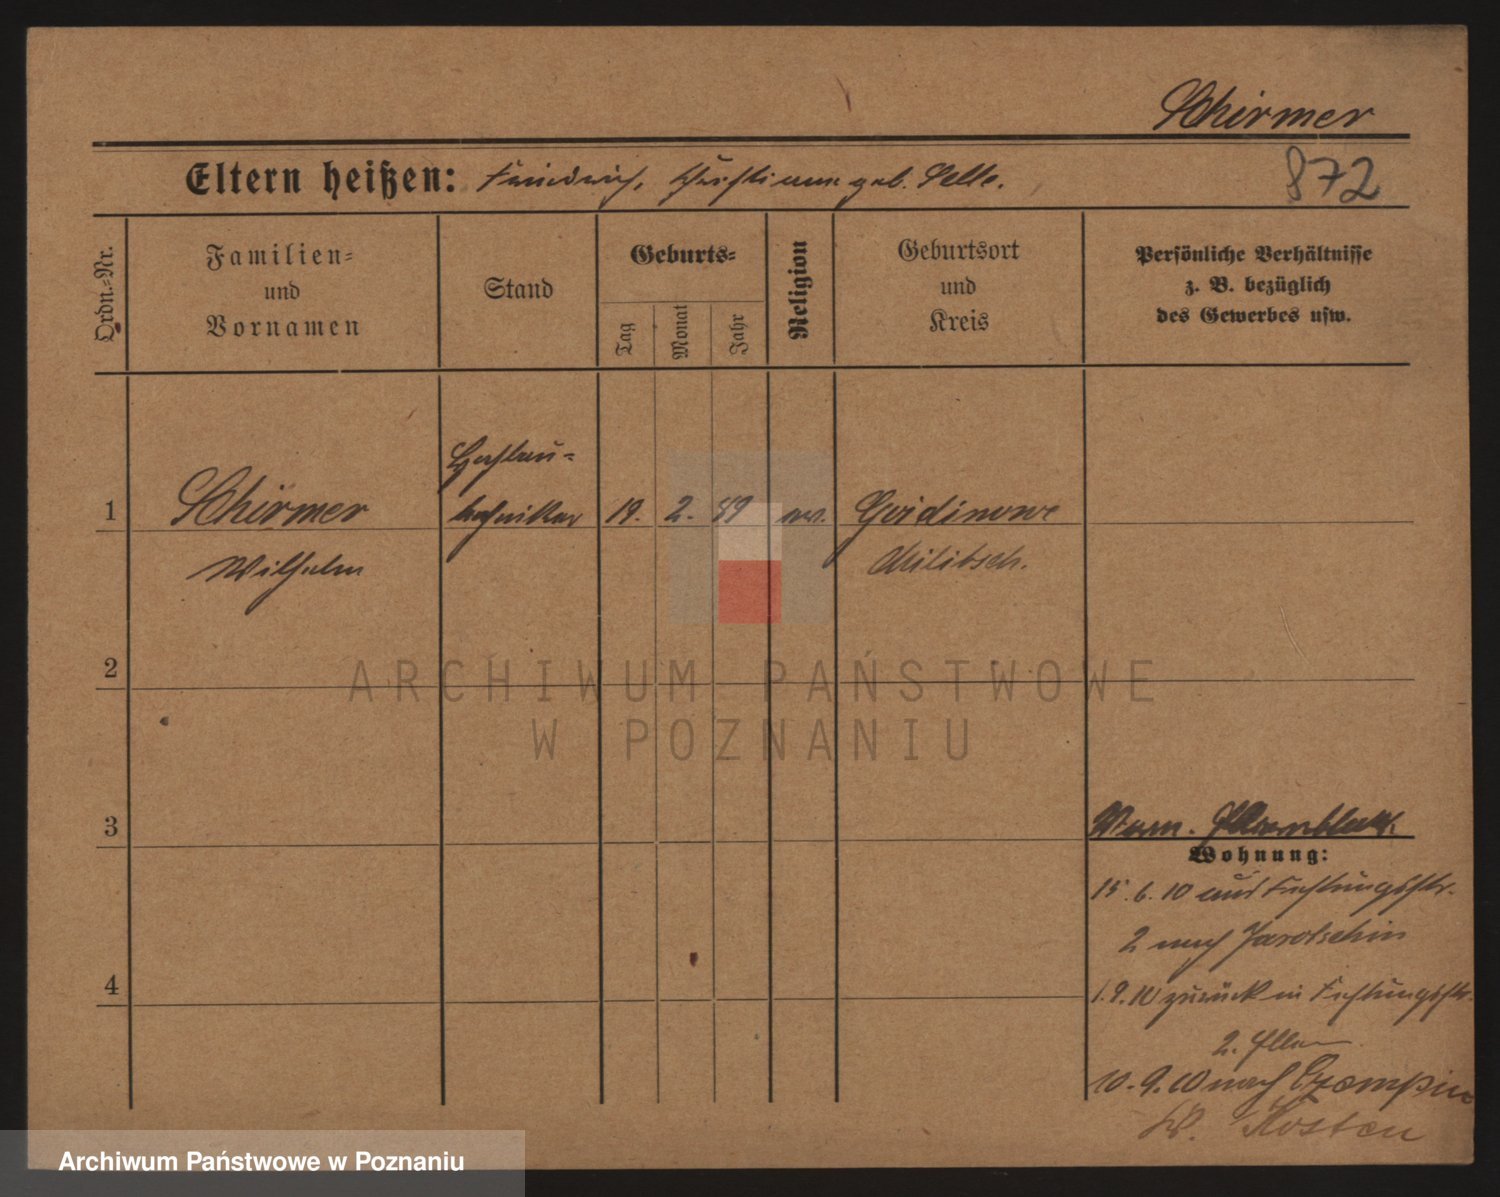 Schirmer
Eltern heißen: Friedrich, Christiane geb. Selle.
872
Ordn.=Nr.
Familien=
und
Vornamen
Stand
Geburts=
Tag
Monat
Jahr
Religion
Geburtsort
und
Kreis
Persönliche Verhältnisse
z. B. bezüglich
des Gewerbes usw.
1
Schirmer
Wilhelm
Hochbau=
techniker
19.
2.
89
ev.
Militsch.
2
3
4
Wohnung:
15.6.10 aus
2 nach Jarotschin
1.9.10 zurück in
2. Eltern
10.9.10 nach Czempin
Kosten
ARCHIWUM PAŃSTWOWE
W POZNANIU
Archiwum Państwowe w Poznaniu